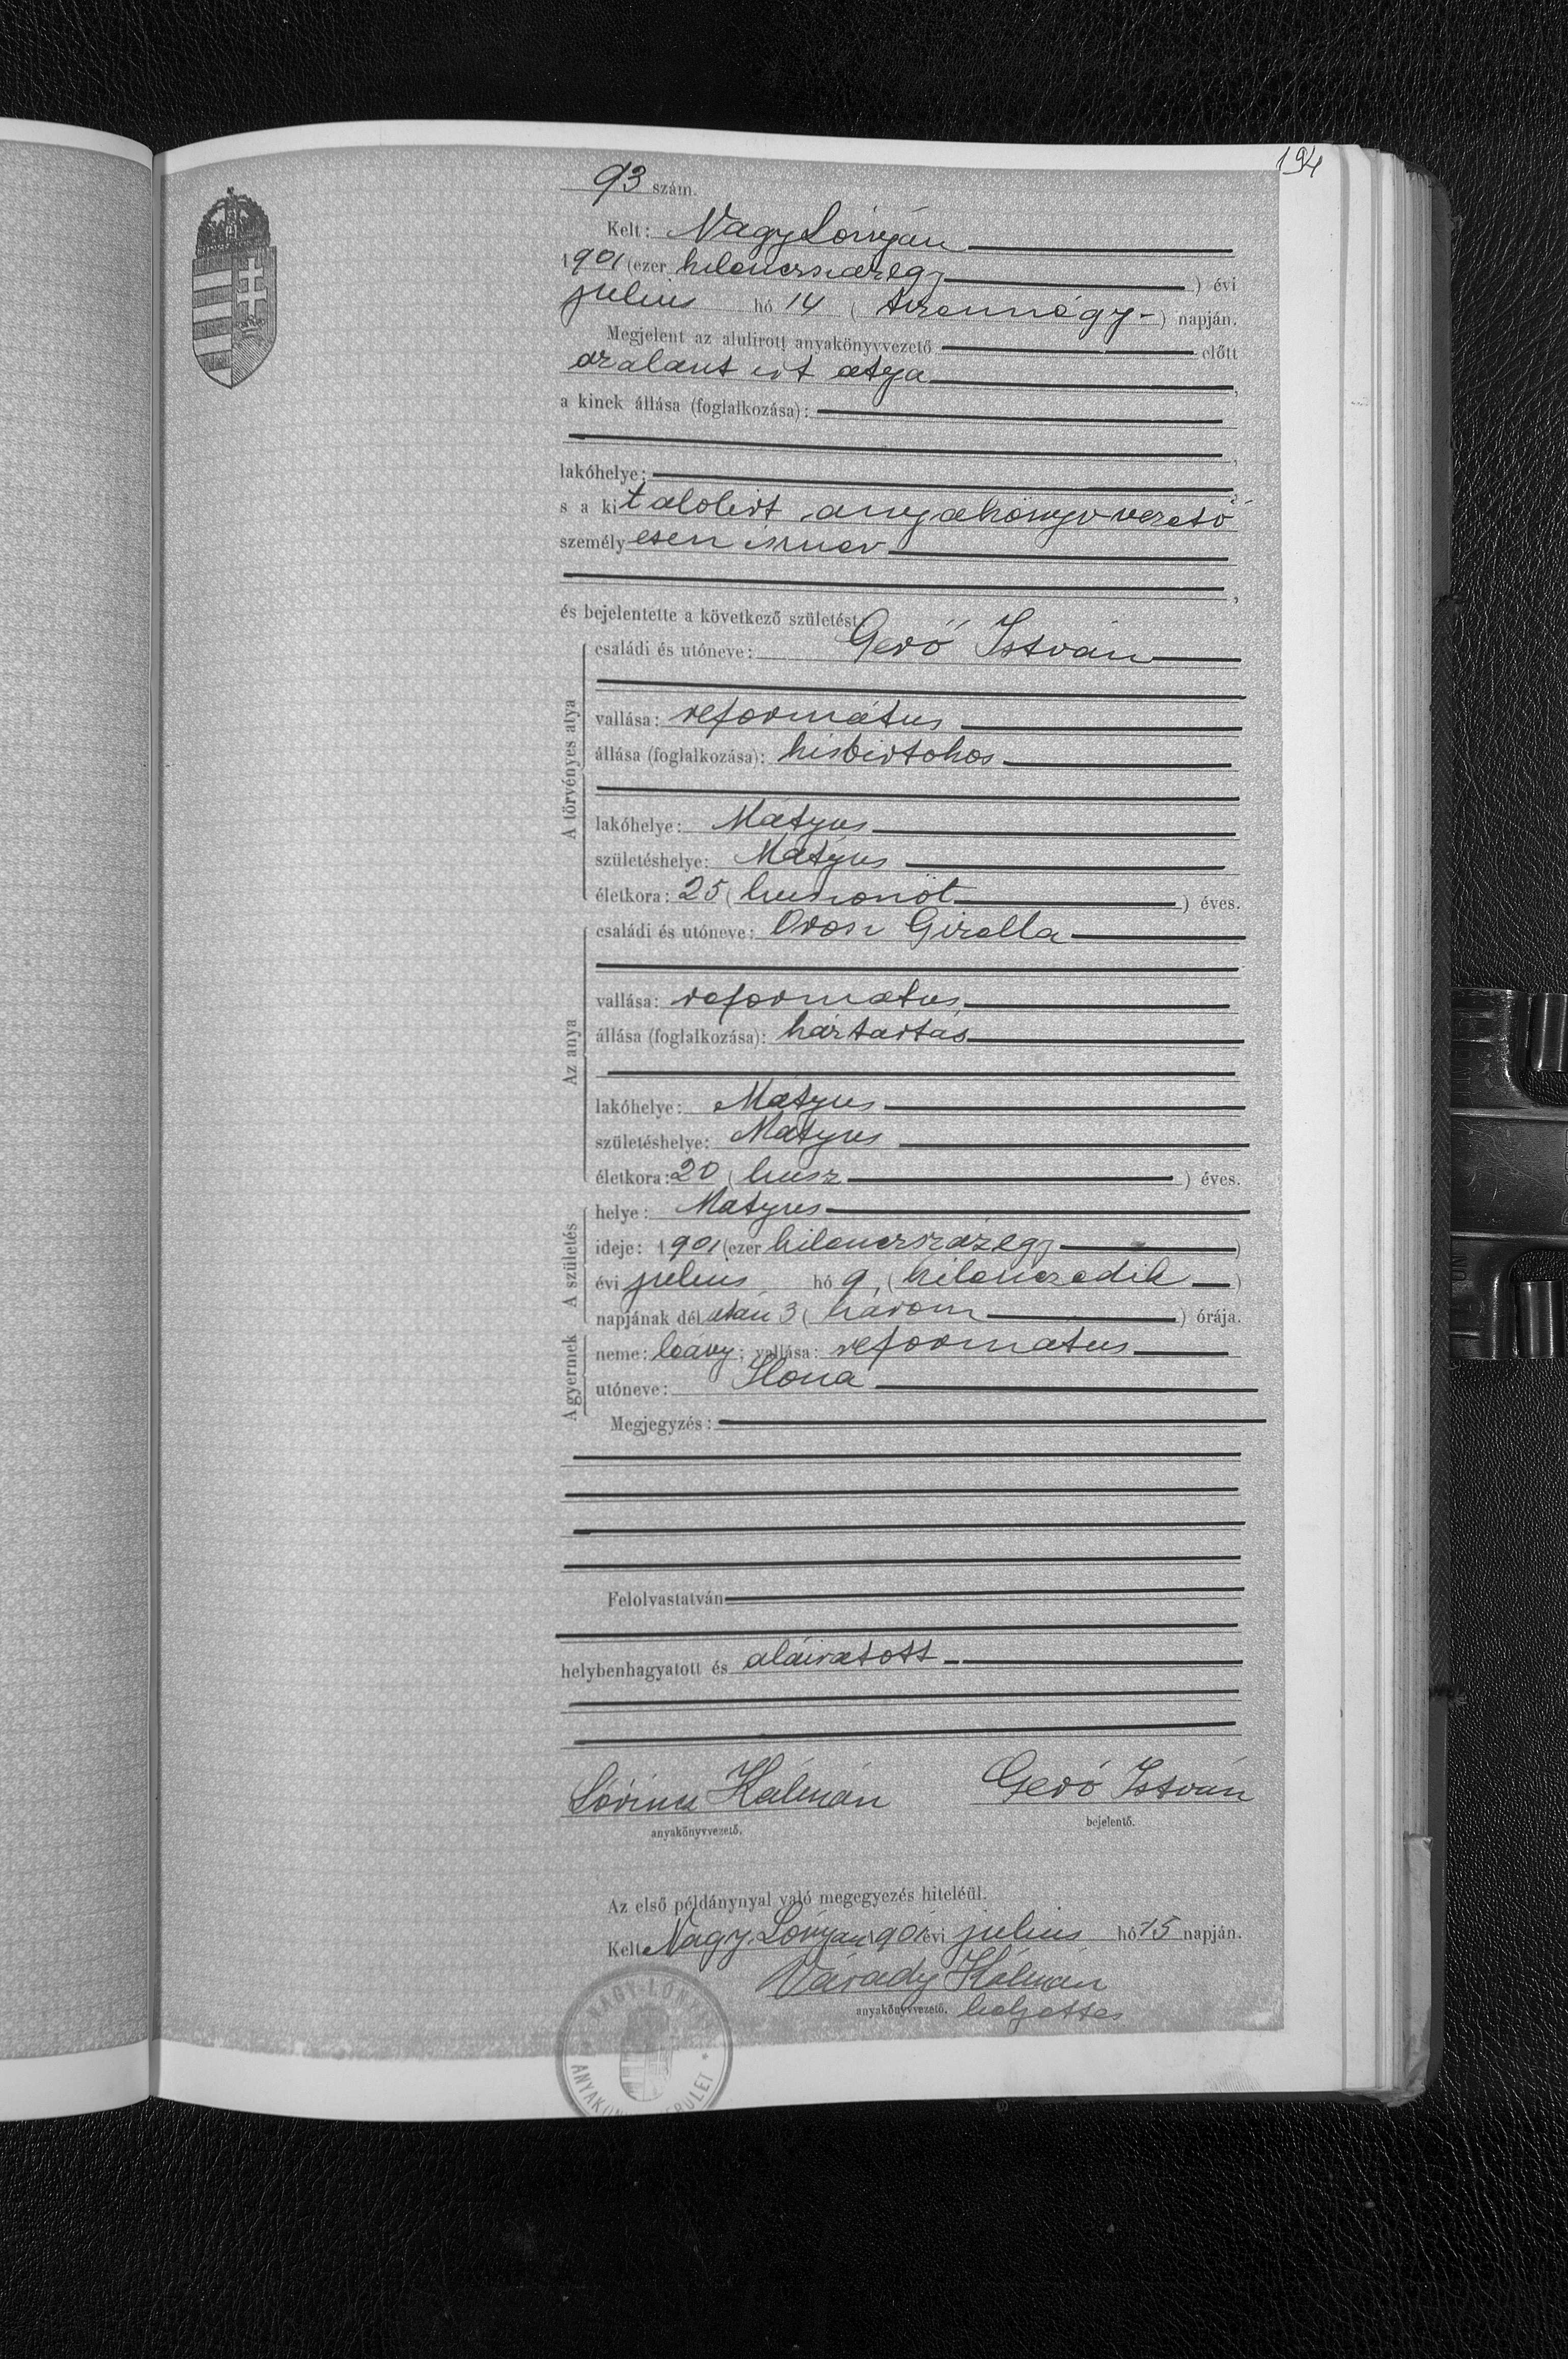 194
93 szám.
Kelt: Nagy Lónyán
1901 (ezer kilencszázegy) évi
julius hó 14 (tizennégy-) napján.
Megjelent az alulirott anyakönyvvezető előtt
az alant irt atya,
a kinek állása (foglalkozása):
lakóhelye:
s a kit alolirt anyakönyvvezető
személyesen ismer
és bejelentette a következő születést:
A törvényes atya
családi és utóneve: Gerő István
vallása: református
állása (foglalkozása): kisbirtokos
lakóhelye: Mátyus
születéshelye: Mátyus
életkora: 25 (huszonöt) éves.
Az anya
családi és utóneve: Orosz Gizella
vallása: református
állása (foglalkozása): háztartás
lakóhelye: Mátyus
születéshelye: Mátyus
életkora: 20 (husz) éves.
A születés
helye: Mátyus
ideje: 1901 (ezer kilencszázegy)
évi julius hó 9. (kilenczedik)
napjának dél után 3 (három) órája.
A gyermek
neme: leány; vallása: református
utóneve: Ilona
Megjegyzés:
Felolvastatván
helybenhagyatott és aláiratott
Lőrincz Kálmán Gerő István
anyakönyvvezető. bejelentő.
Az első példánynyal való megegyezés hiteléül.
Kelt Nagy Lónyán 1901 évi julius hó 15 napján.
Várady Kálmán
anyakönyvvezető. helyettes
NAGY-LÓNY
ANYAKÖN ERÜLET